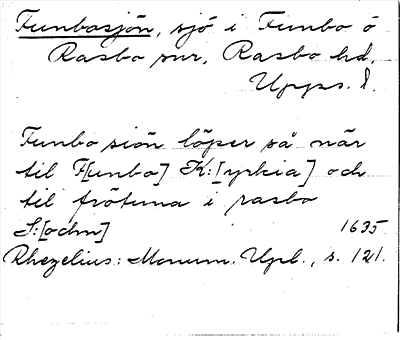 Funbosjön, sjö i Funbo ö
Rasbo snr, Rasbo hd,
Upps. l.
Funbo siön löper så när
til F[unbo] K:[yrkia] och
til frötuna i rasbo
S:[ochn]
1635
Rhezelius: Monum. Upl., s. 121.